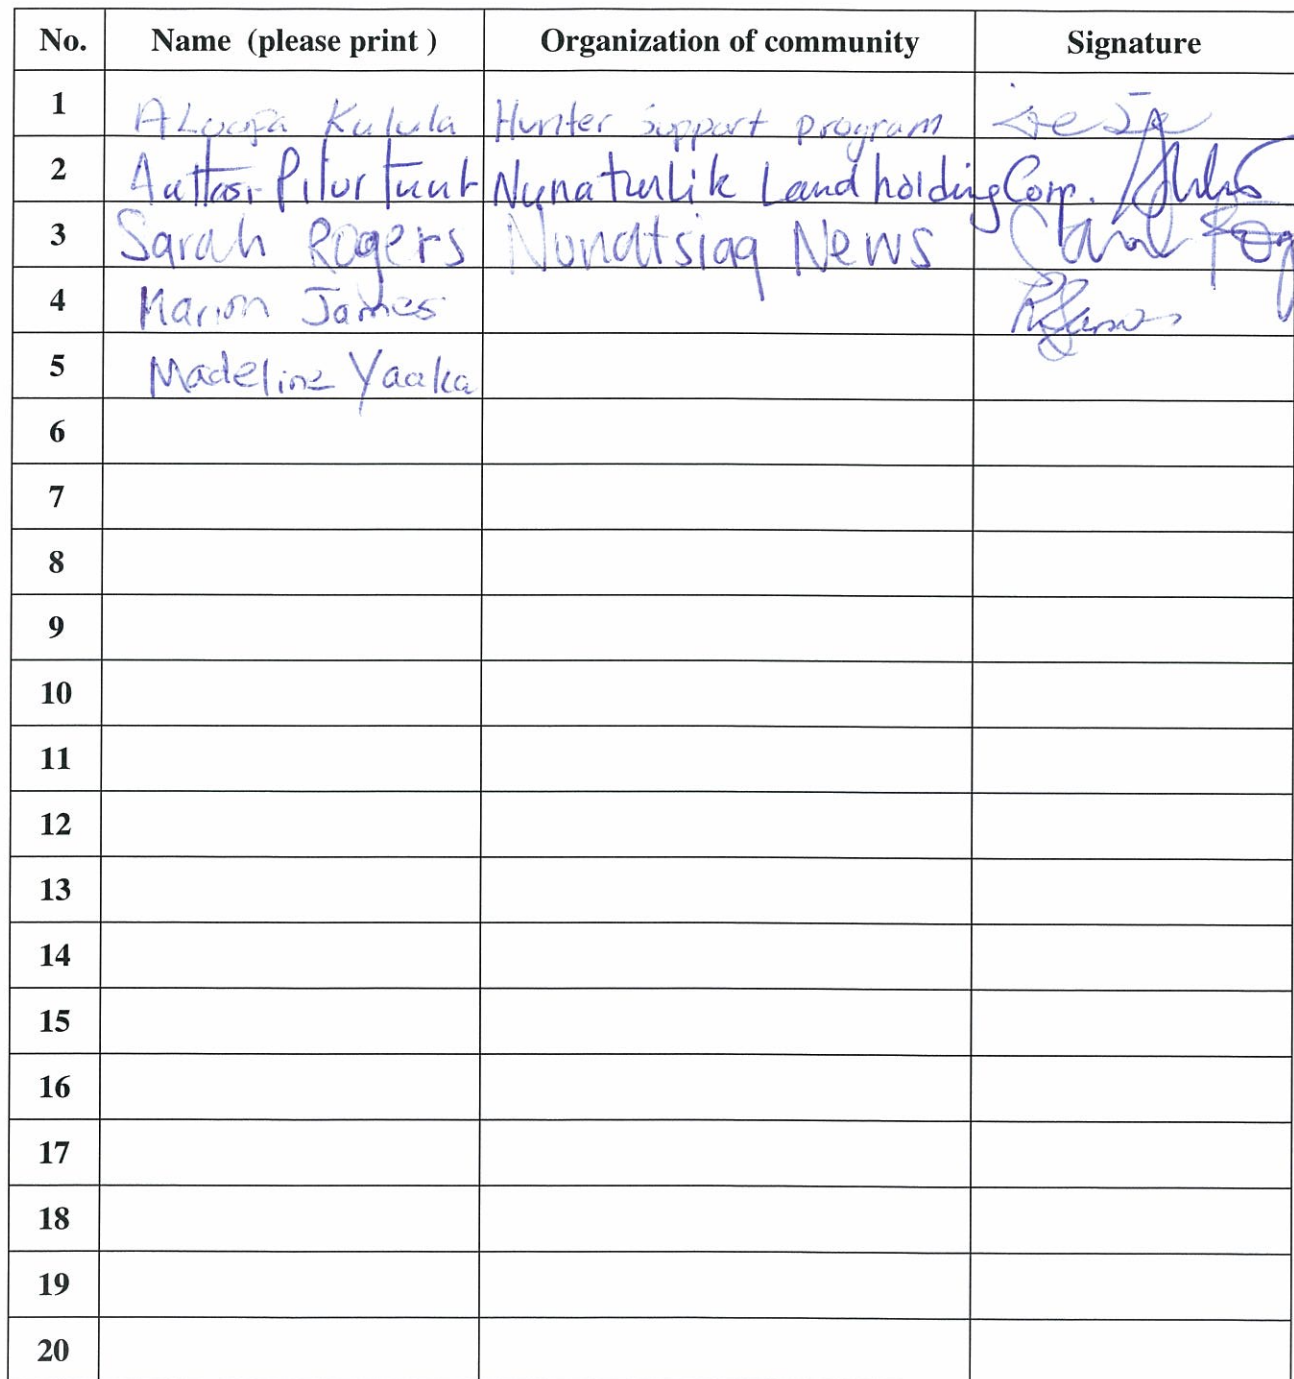 No. Name (please print ) Organization of community Signature
1 Kulula Hunter support program
2 Nunaturlik Landholding Corp.
3 Sarah Rogers Nunatsiaq News
4 Marion James
5 Madeline Yaaka
6
7
8
9
10
11
12
13
14
15
16
17
18
19
20